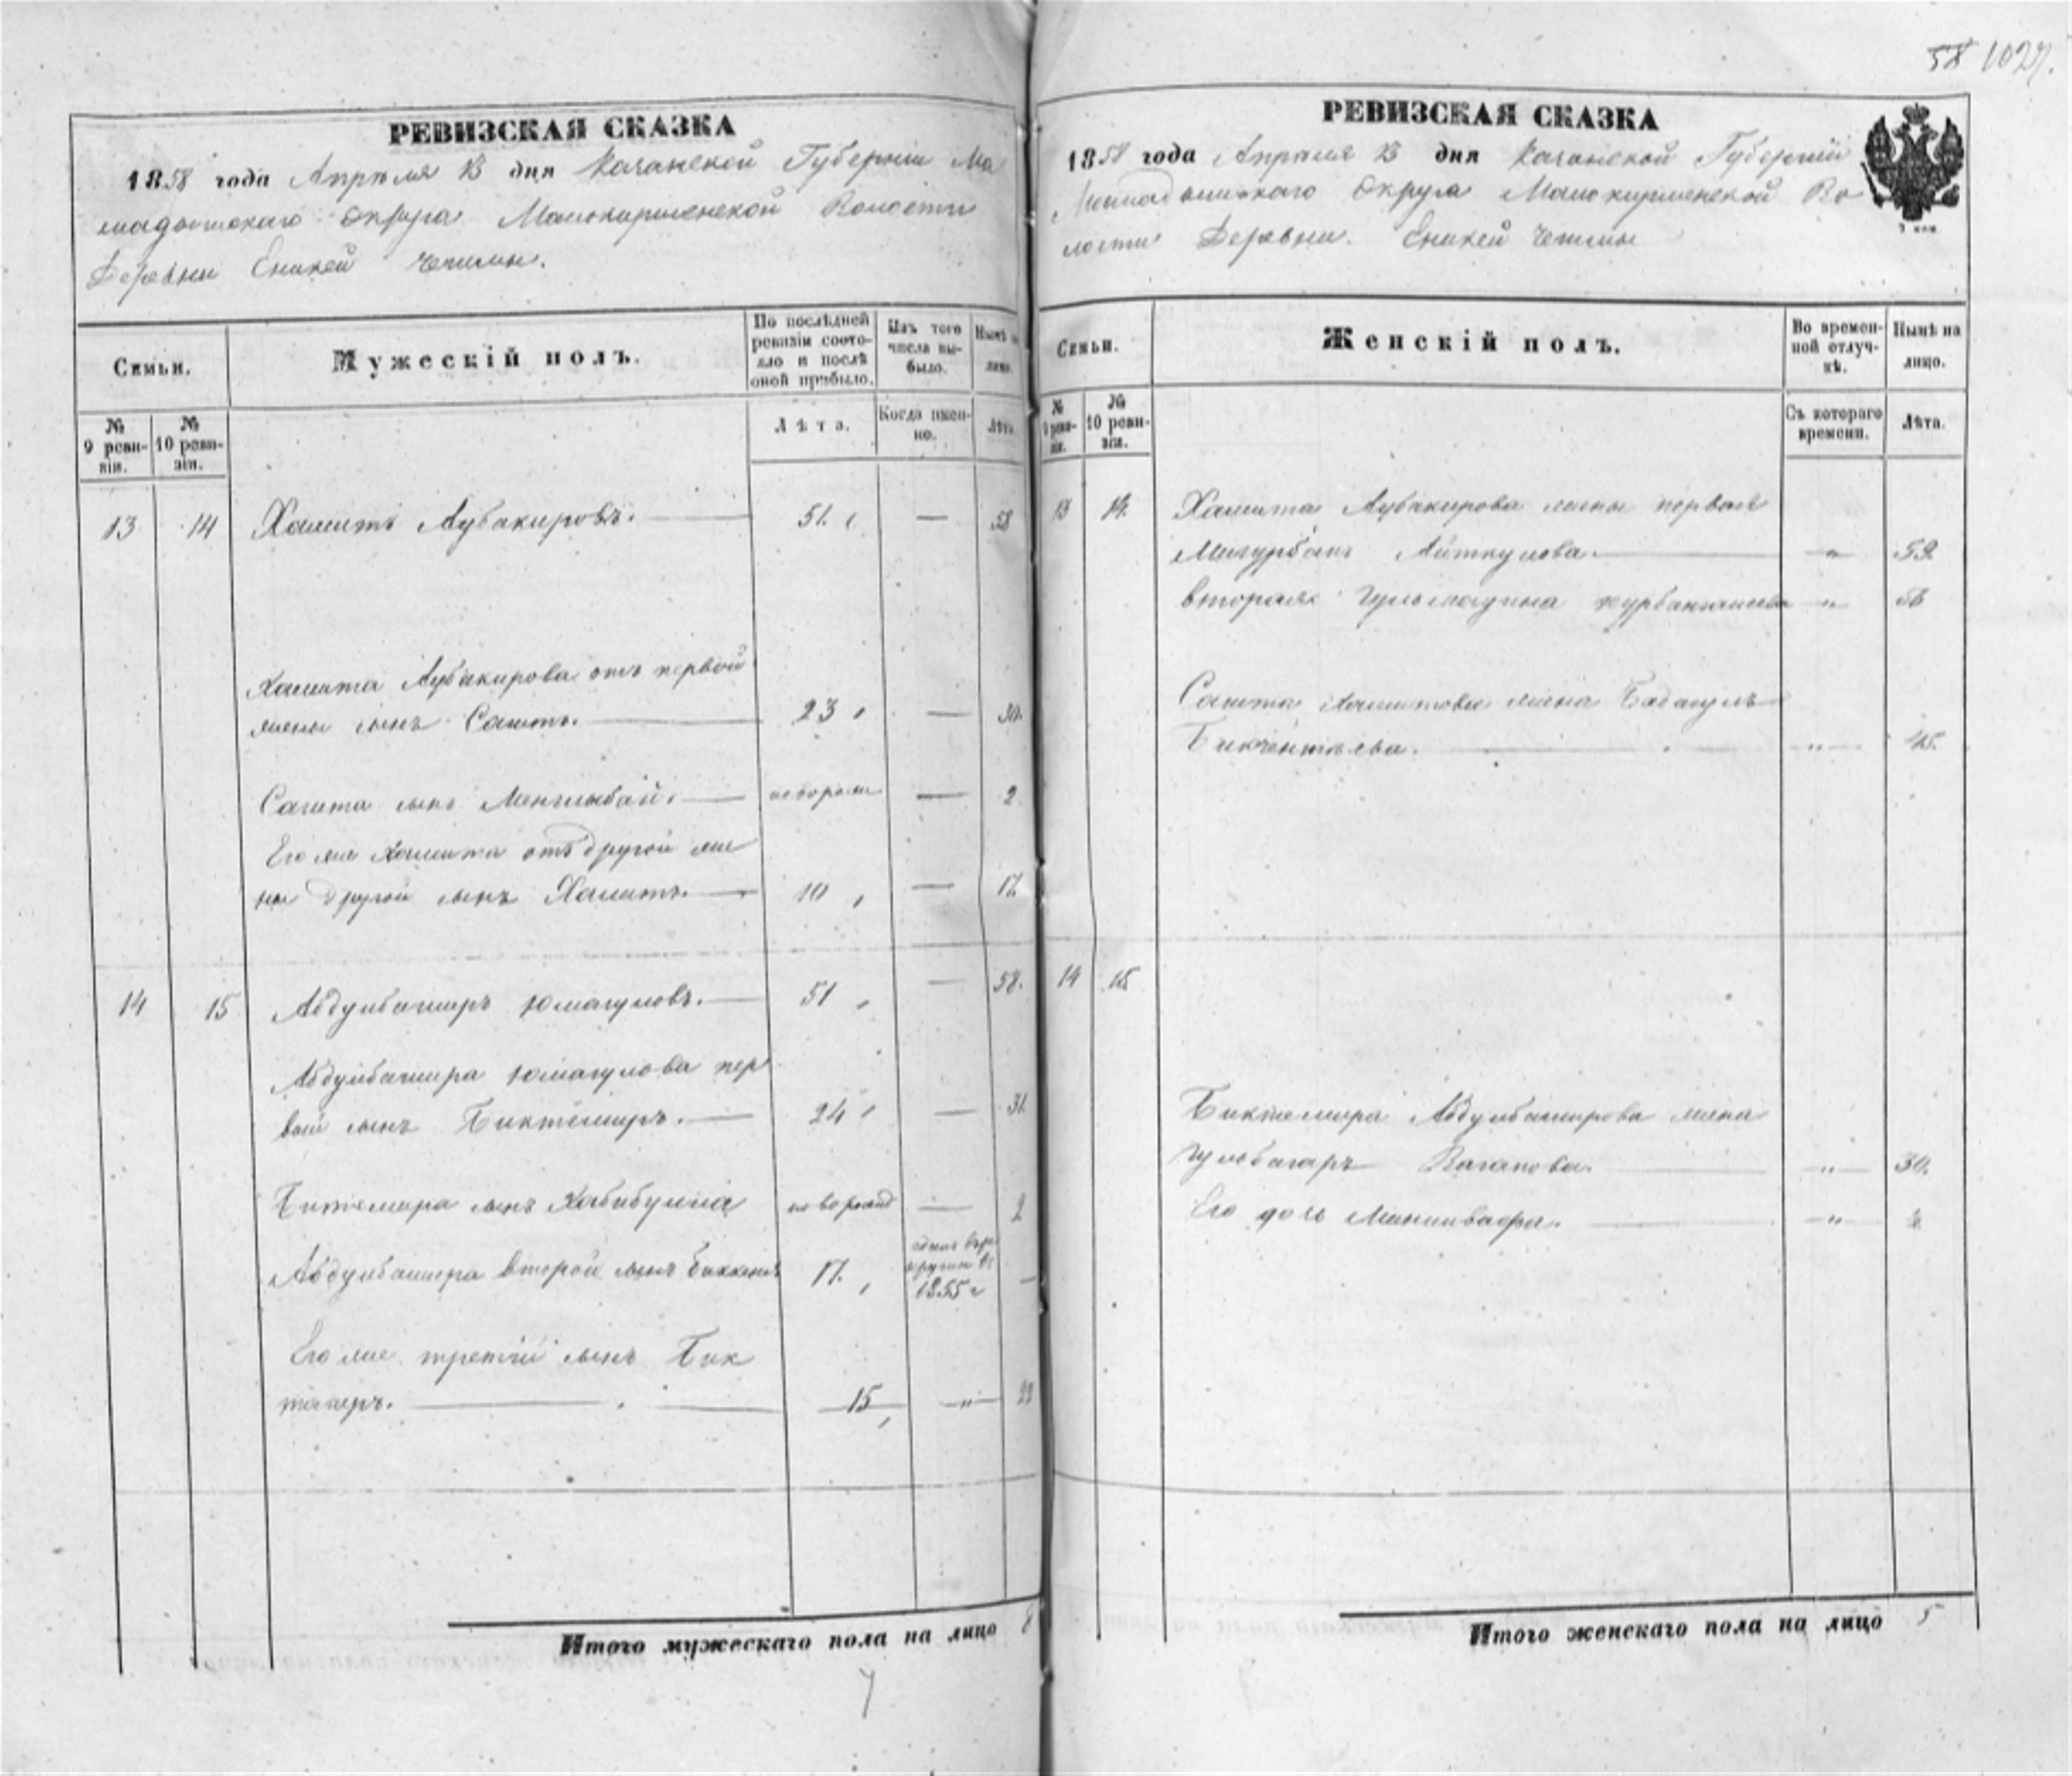 58 1027.
РЕВИЗСКАЯ СКАЗКА
1858 года Апреля 13 дня Казанской Губернiи Ма
мадышскаго Округа Малокирменской Волости
Деревни Еникей Чешмы.
Семьи.
Мужескiй полъ.
По послѣдней ревизiи состояло и послѣ оной прибыло.
Изъ того числа выбыло.
Нынѣ на лицо.
№ 9 ревизiи.
№ 10 ревизiи.
Лѣта.
Когда именно.
Лѣта.
13 14 Хамитъ Аубакировъ. 51. — 58
Хамита Аубакирова отъ первой
жены сынъ Сагитъ. 23 — 30.
Сагита сынъ Менглыбай. новорож — 2
Его же Хамита отъ другой же
ны другой сынъ Халитъ. 10 — 17.
14 15 Абдулбашыръ Юмагуловъ. 51 — 58.
Абдулбашира Юмагулова пер
вый сынъ Биктемиръ. 24 — 31
Биктемира сынъ Хабибулла новорожд — 2
Абдулбашира второй сынъ 17. 1855 г —
Его же третiй сынъ Бик
тагиръ. 15 „ 22
Итого мужескаго пола на лицо 8
7
РЕВИЗСКАЯ СКАЗКА
1858 года Апреля 13 дня Казанской Губернiи
Мамадышскаго Округа Малокирменской Во
лости Деревни Еникей Чешмы
2 коп
Семьи.
Женскiй полъ.
Во временной отлучкѣ.
Нынѣ на лицо.
№ 9 ревизiи.
№ 10 ревизiи.
Съ котораго времени.
Лѣта.
13 14. Хамита Аубакирова жены первая
Айткулова. „ 59.
вторая „
Сагита Хамитова жена
Бикчентаева. „
14 15
Биктемира Абдулбаширова жена
Вагапова. „ 30.
Его дочь „
Итого женскаго пола на лицо 5